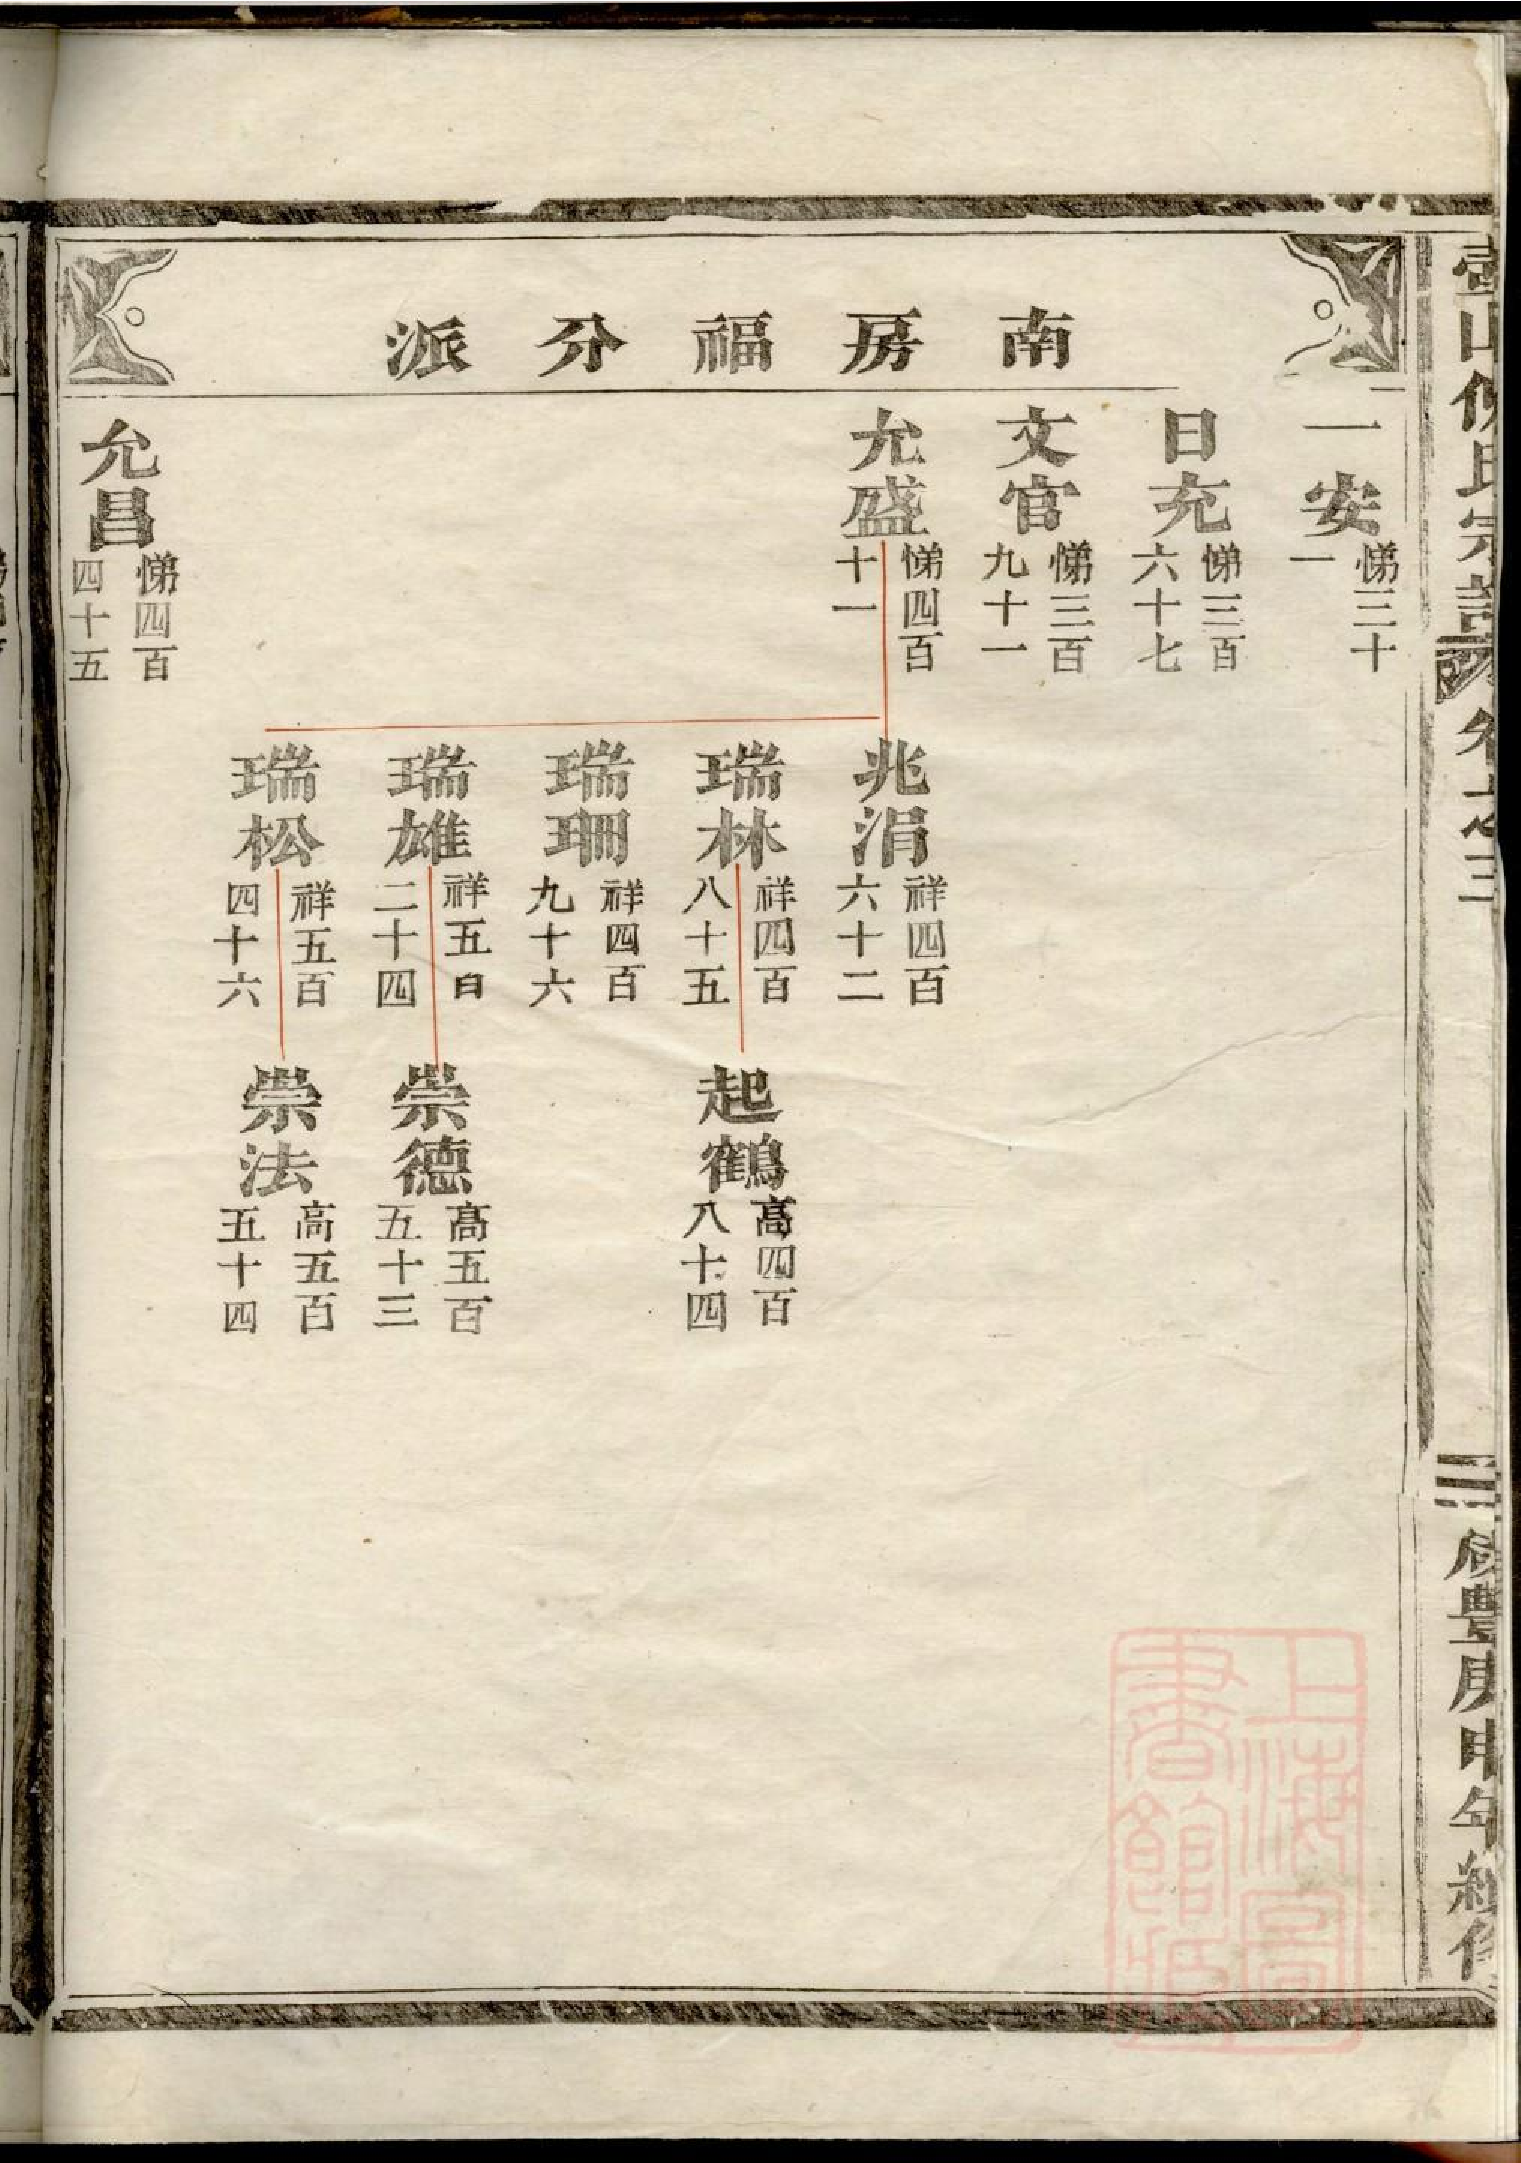 南房福分派
一安
悌三十
一
日充
悌三百
六十七
文官
悌三百
九十一
允盛
悌四百
十一
允昌
悌四百
四十五
兆涓
祥四百
六十二
瑞林
祥四百
八十五
瑞珊
祥四百
九十六
瑞雄
祥五百
二十四
瑞松
祥五百
四十六
起鶴
高四百
八十四
崇德
髙五百
五十三
崇法
高五百
五十四
山 氏宗譜 卷之三
咸豐庚申年續修
上海圖
書館藏